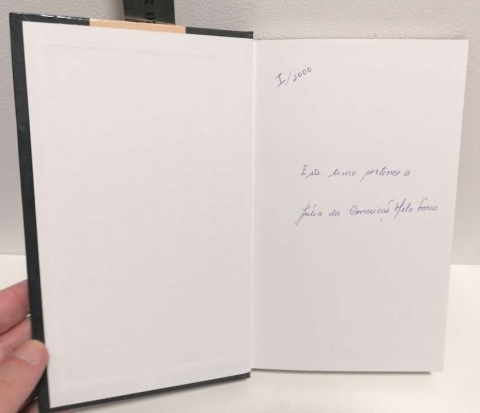 I/2000
Este livro pertence a:
Júlia da Conceição Melo